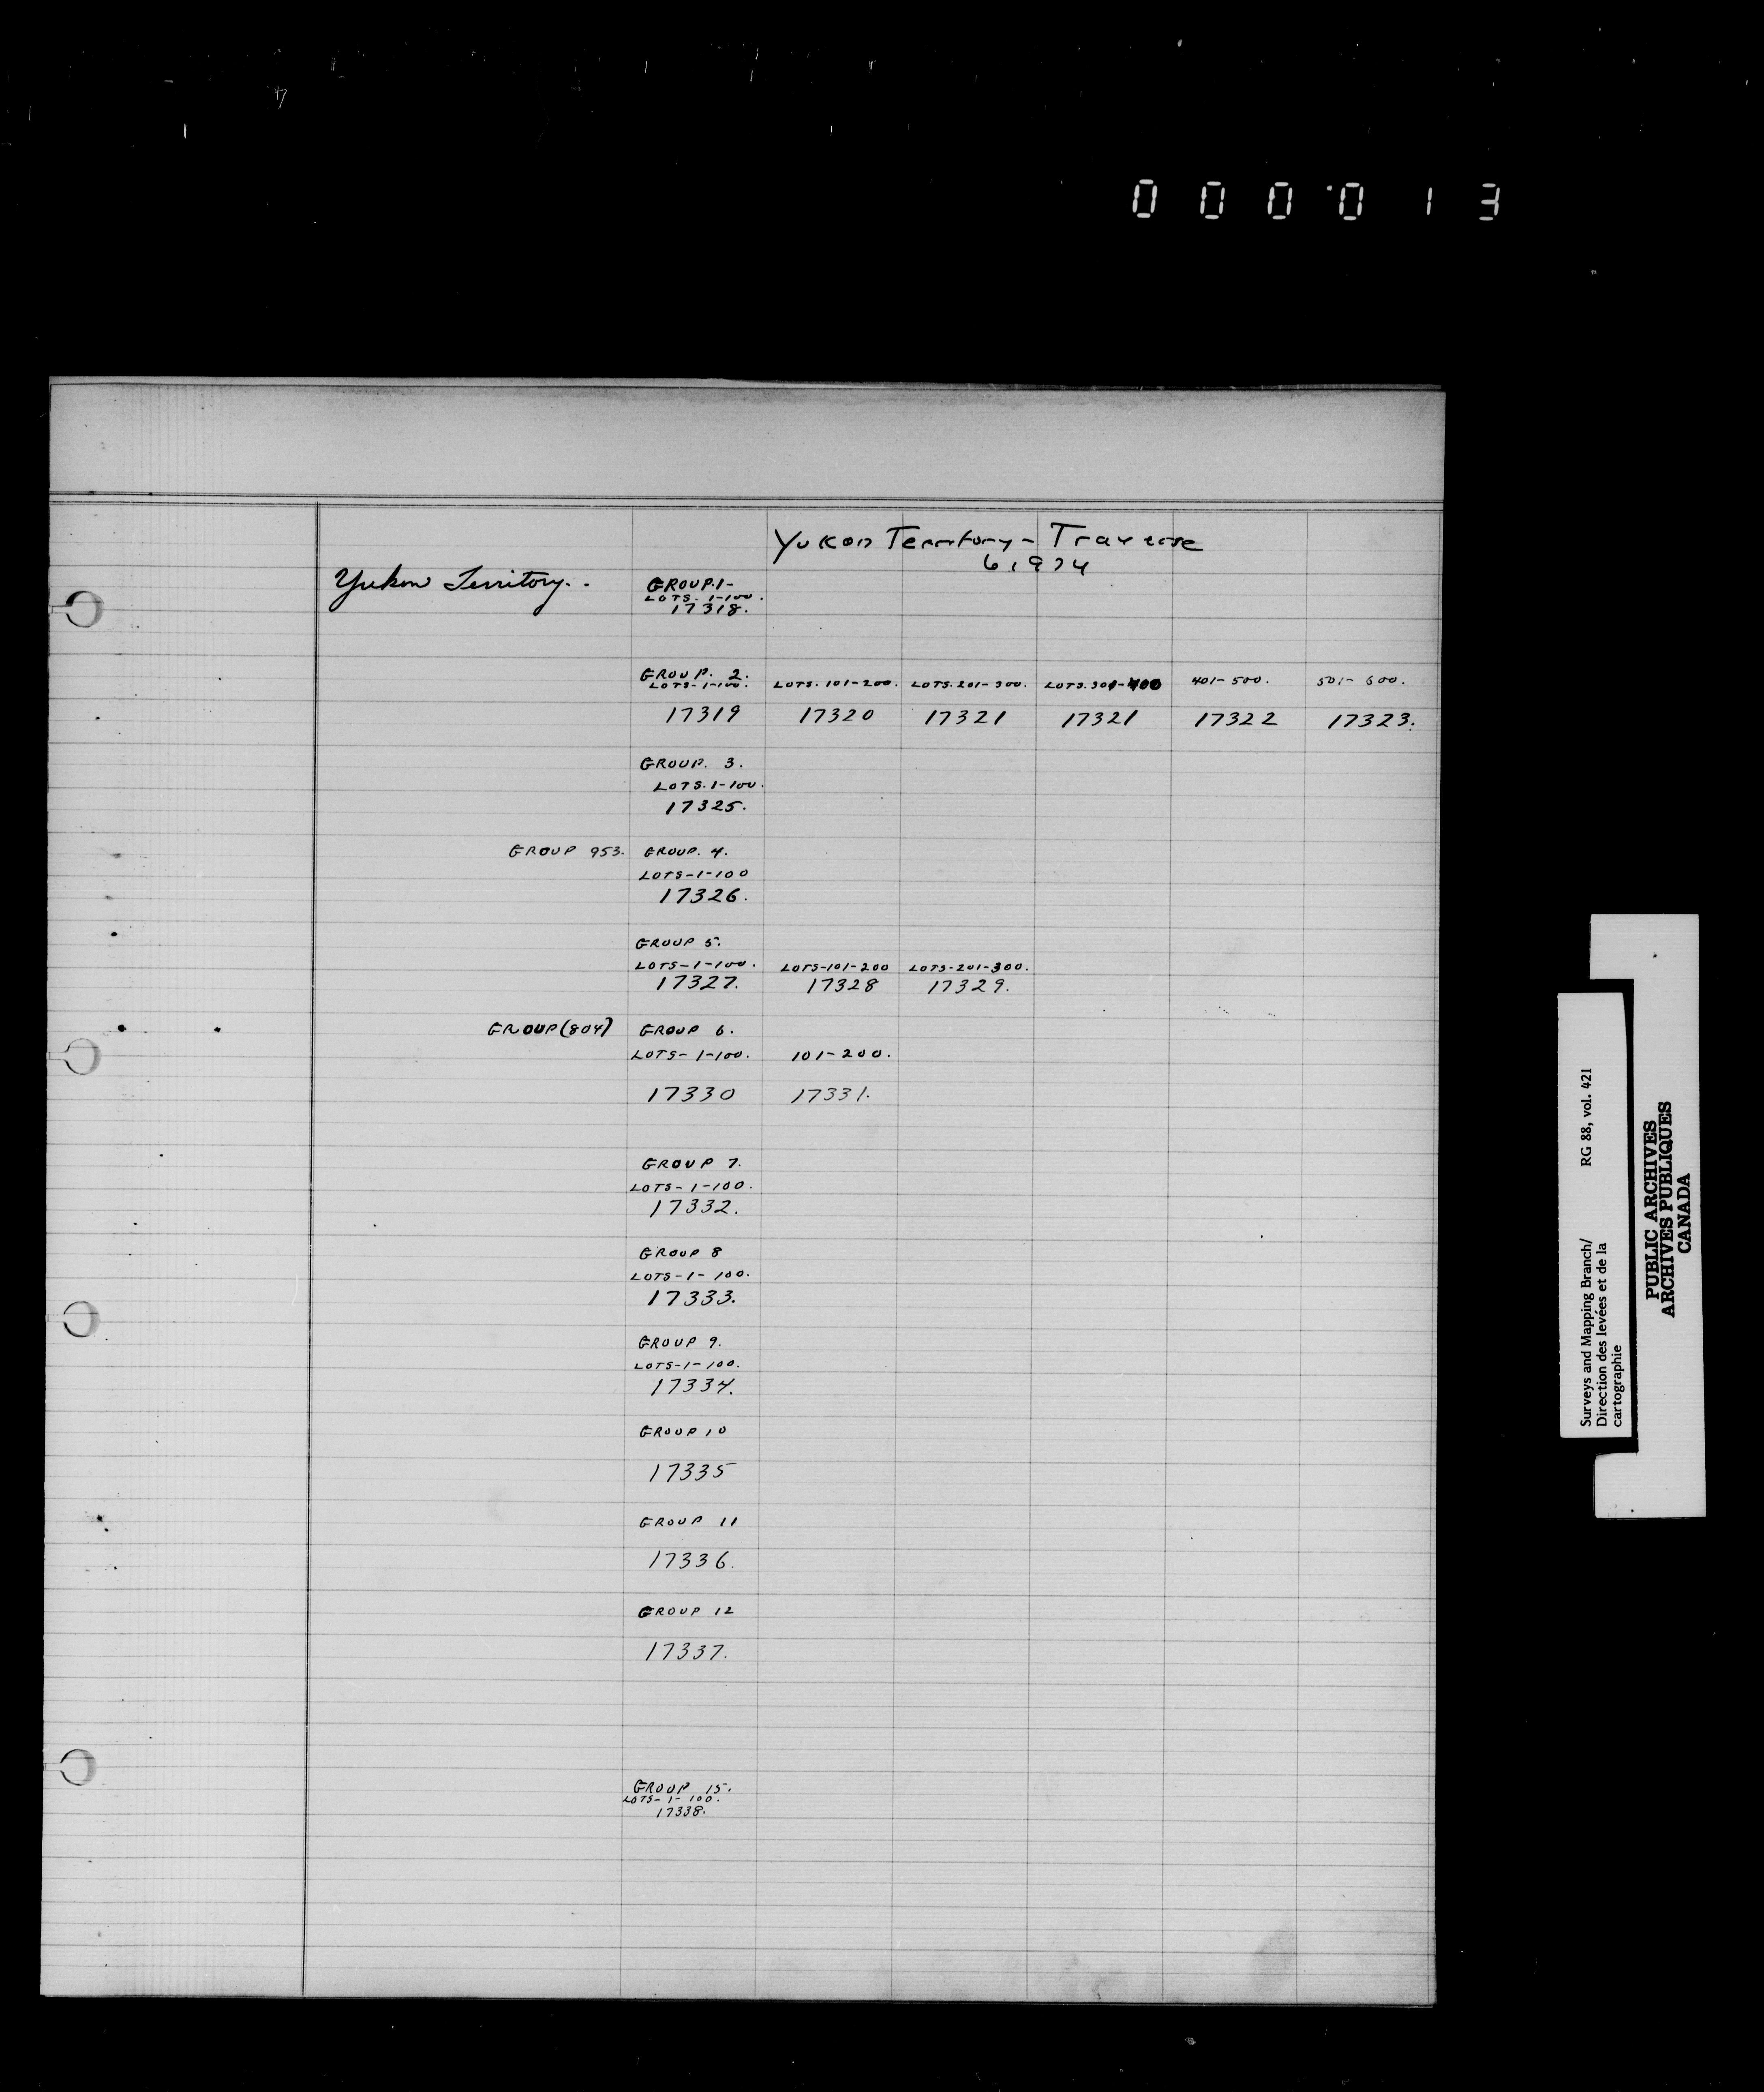 000013
Yukon Territory - Traverse
61974
Yukon Territory..
GROUP.1-
LOTS. 1-100.
17318.
GROUP. 2.
LOTS-1-100. LOTS. 101-200. LOTS. 201-300. LOTS. 301-400 401-500. 501-600.
17319 17320 17321 17321 17322 17323.
GROUP. 3.
LOTS. 1-100.
17325.
GROUP 953. GROUP. 4.
LOTS-1-100
17326.
GROUP 5.
LOTS-1-100. LOTS-101-200 LOTS-201-300.
17327. 17328 17329.
GROUP(804) GROUP 6.
LOTS-1-100. 101-200.
17330 17331.
GROUP 7.
LOTS-1-100.
17332.
GROUP 8
LOTS-1-100.
17333.
GROUP 9.
LOTS-1-100.
17334.
GROUP 10
17335
GROUP 11
17336.
GROUP 12
17337.
GROUP 15.
LOTS-1-100.
17338.
Surveys and Mapping Branch/ RG 88, vol. 421
Direction des levées et de la
cartographie
PUBLIC ARCHIVES
ARCHIVES PUBLIQUES
CANADA